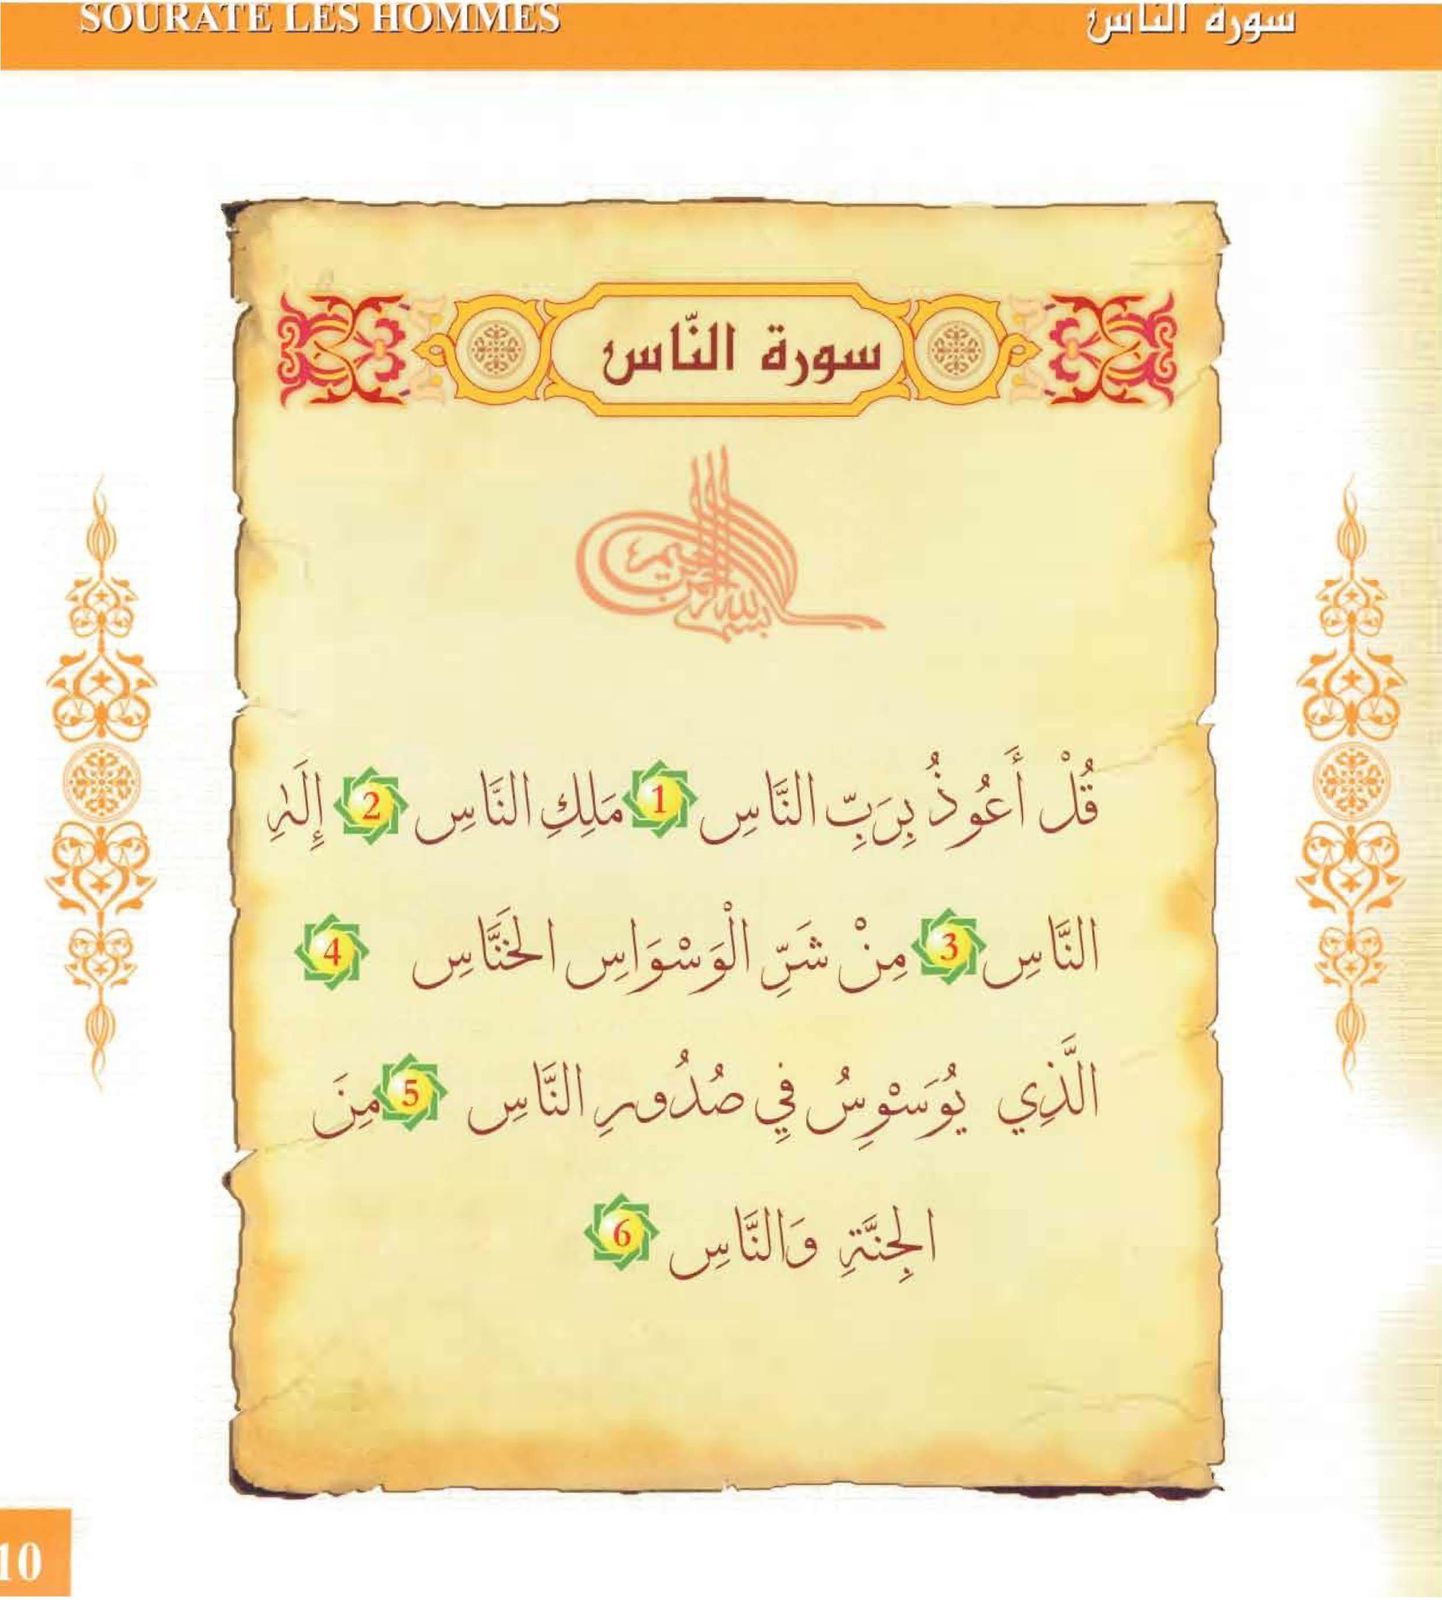 SOURATE LES HOMMES
سورة الناس
سورة النّاس
بسم الله الرحمن الرحيم
قُلْ أَعُوذُ بِرَبِّ النَّاسِ 1 مَلِكِ النَّاسِ 2 إِلَهِ
النَّاسِ 3 مِنْ شَرِّ الْوَسْوَاسِ الخَنَّاسِ 4
الَّذِي يُوَسْوِسُ فِي صُدُورِ النَّاسِ 5 مِنَ
الجِنَّةِ وَالنَّاسِ 6
10